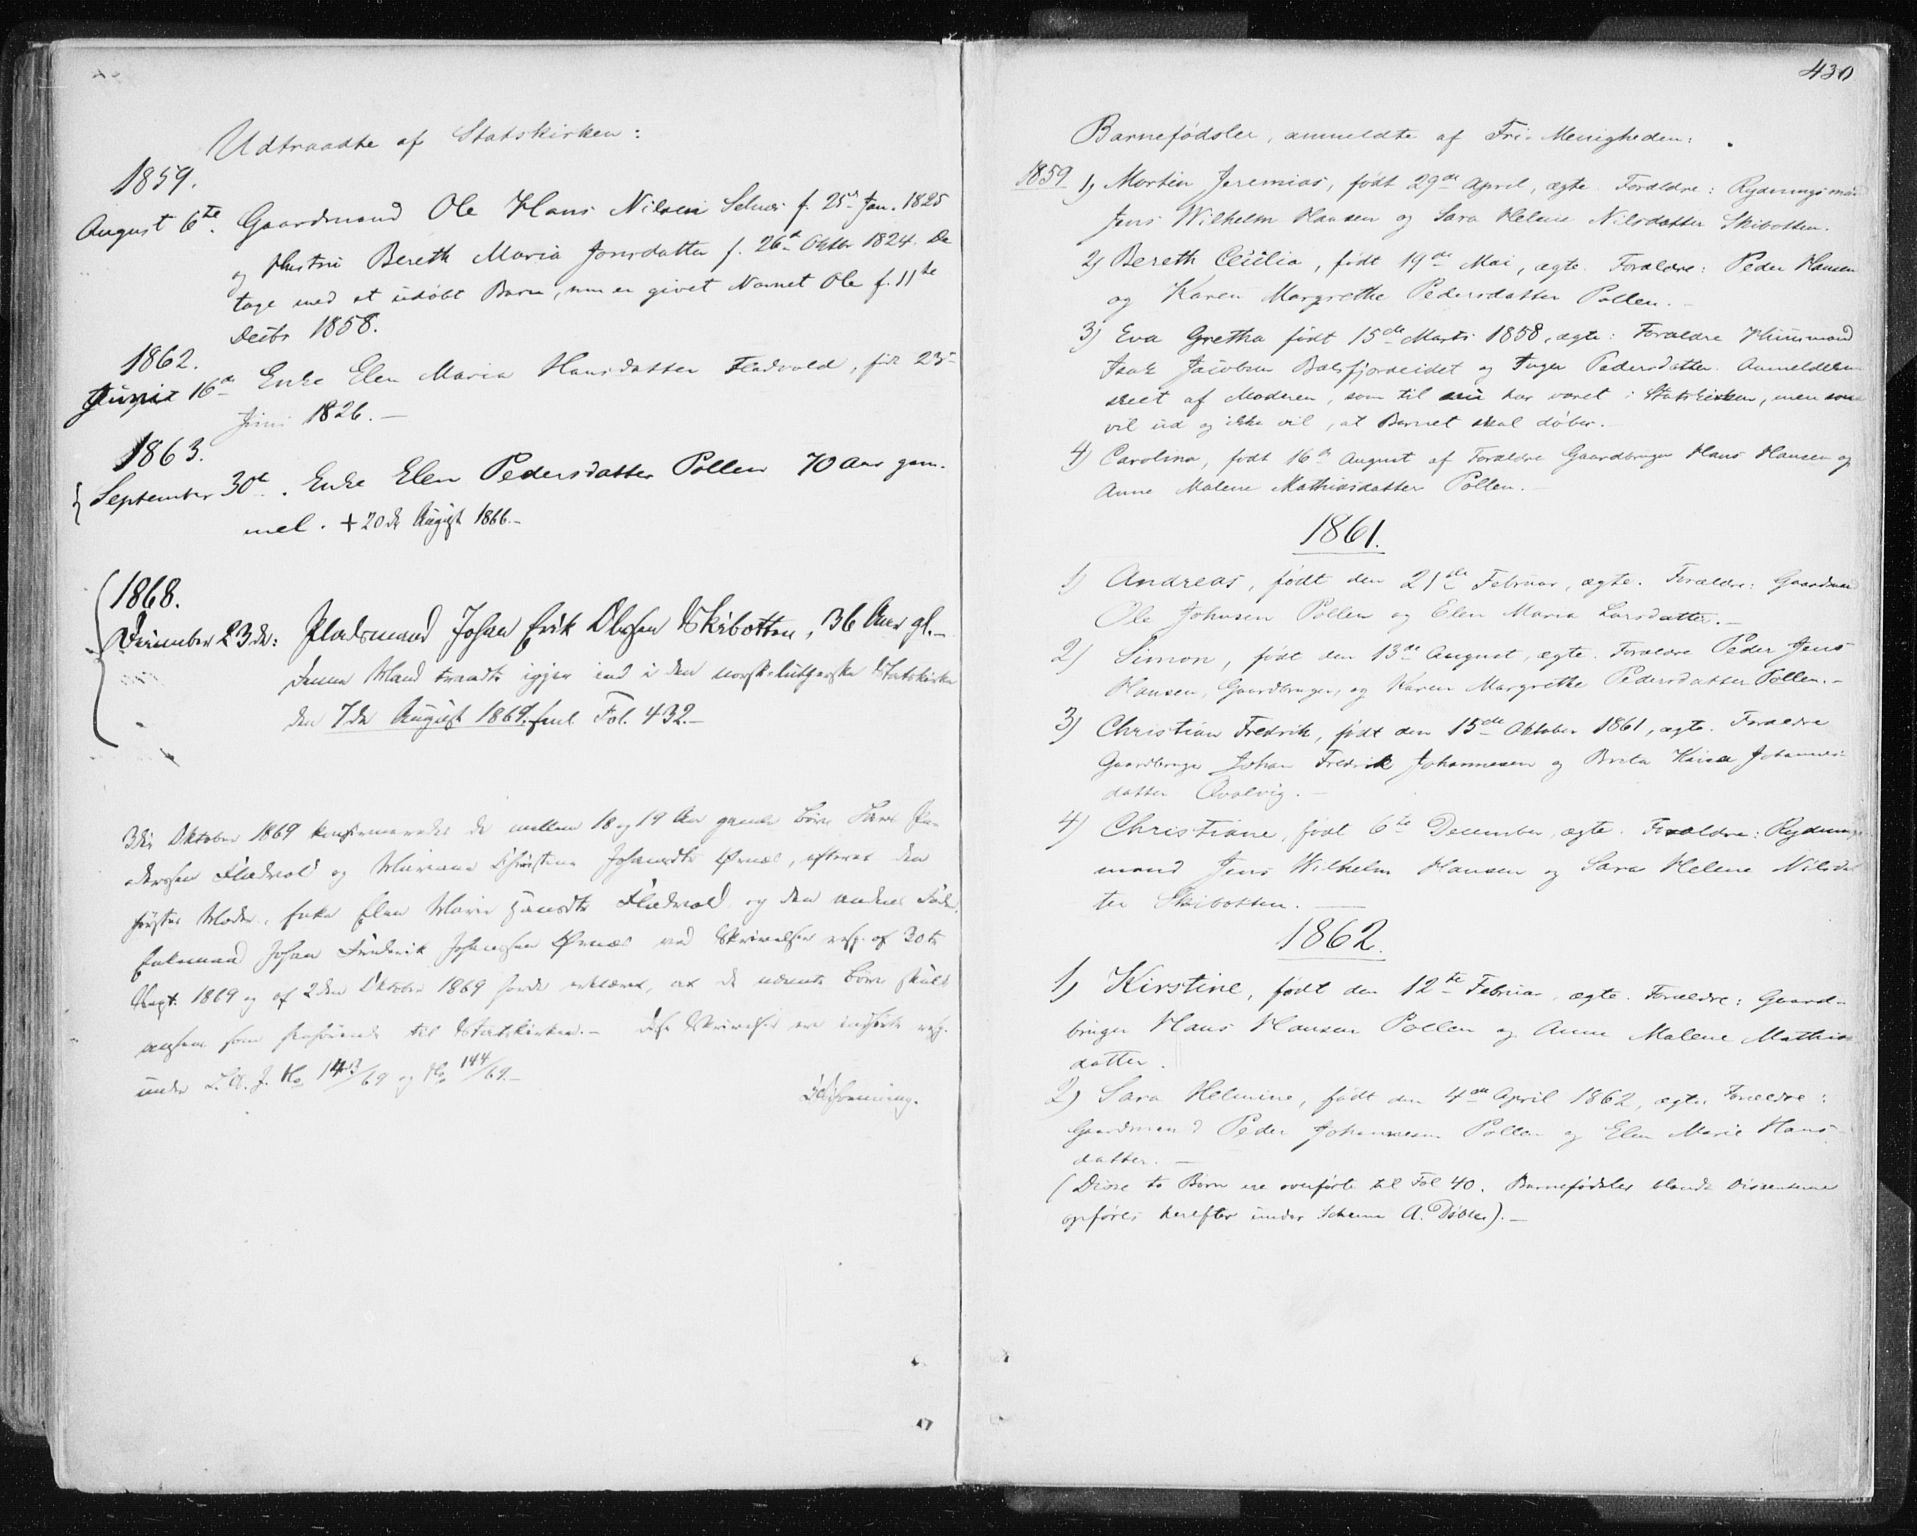 Udtraadte af Statskirken:
1859.
August 6te. Gaardmand Ole Hans Nilsen Selnes f. 25de Jan. 1825
og Hustru Bereth Maria Jonsdatter f. 26de Oktbr 1824. De
tage med et udøbt Barn, som er givet Navnet Ole f. 11te
Decbr 1858.
1862.
16de Enke Elen Maria Hansdatter Fladvold, fød 23de
Juni 1826. –
1863.
September 30te. Enke Elen Pedersdatter Pollen 70 Aar gam-
mel. + 20de August 1866.–
1868.
December 23de: Pladsmand Johan Erik Olsen Skibotten, 36 Aar gl.–
Denne Mand traadte igjen ind i den norsk-lutherske Statskirke
den 7de August 1869. Fol. 432.–
3die Oktober 1869 konfirmeredes de mellem 18 og 19 Aar gamle Børn
Fladvold og Mariane Christine Johansdtr Ørnæs, efterat den
førstes Moder, Enke Elen Marie Hansdtr Fladvold og den andens Fader,
Enkemand Johan Frederik Johansen Ørnæs ved Skrivelser resp. af 30te
Sept. 1869 og af 2den Oktober 1869 havde erklæret, at de nævnte Børn skulde
ansees som henhørende til Statskirken.– Disse Skrivelser ere indførte resp.
under No 143/69 og No 144/69.–
430
Barnefødsler, anmeldte af Fri-Menigheden:
1859 1) Morten Jeremias, født 29de April, ægte. Forældre: Rydningsmand
Jens Wilhelm Hansen og Sara Helene Nilsdatter Skibotten.
2) Bereth Cecilia, født 19de Mai, ægte. Forældre: Peder Hansen
og Karen Margrethe Pedersdatter Pollen. –
3) Eva Gretha født 15de Marts 1858, ægte: Forældre Huusmand
Isak Jacobsen Balsfjordeidet og Inger Pedersdatter. Anmeldelsen
skeet af Moderen, som til nu har været i Statskirken, men som
vil ud og ikke vil, at Barnet skal døbes. –
4) Carolina, født 16de August af Forældre Gaardbruger Hans Hansen og
Anne Malene Mathiasdatter Pollen. –
1861.
1) Andreas, født den 21de Februar, ægte. Forældre: Gaardmand
Ole Johnsen Pollen og Elen Maria Larsdatter. –
2) Simon, født den 13de August, ægte. Forældre Peder Jens
Hansen, Gaardbruger, og Karen Margrethe Pedersdatter Pollen. –
3) Christian Fredrik, født den 15de Oktober 1861, ægte. Forældre
Gaardbruger Johan Fredrik Johannesen og Brita Kaisa Johannes-
datter Qvalvig. –
4) Christiane, født 6te December, ægte. Forældre: Rydnings-
mand Jens Wilhelm Hansen og Sara Helene Nilsdat
ter Skibotten. –
1862.
1) Kirstine, født den 12te Februar, ægte. Forældre: Gaard-
bruger Hans Hansen Pollen og Anne Malene Mathias
datter.
2) Sara Helmine, født den 4de April 1862, ægte. Forældre:
Gaardmand Peder Johannesen Pollen og Elen Marie Hans-
datter. –
(Disse to Børn ere overførte til Fol 40. Barnefødsler blandt Dissenterne
opføres herefter under Schema A. Døbte). –